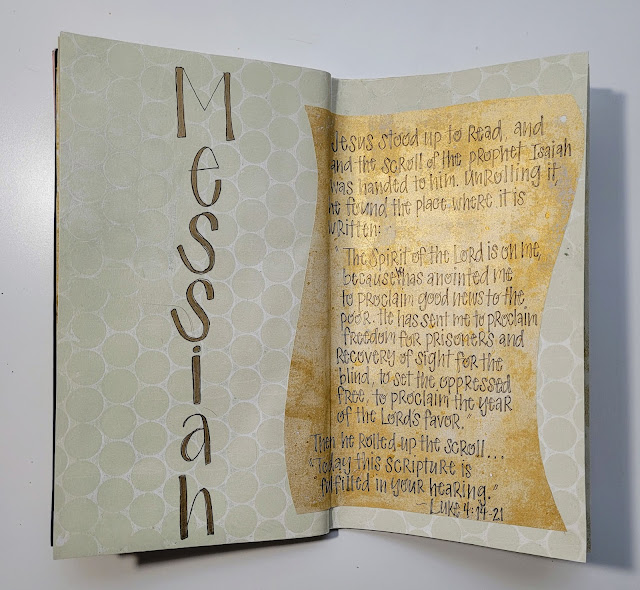 Messiah
Jesus stood up to read, and
and the scroll of the prophet Isaiah
was handed to him. Unrolling it,
he found the place where it is
written:
"The Spirit of the Lord is on me,
because he has anointed me
to proclaim good news to the
poor. He has sent me to proclaim
freedom for prisoners and
recovery of sight for the
blind, to set the oppressed
free, to proclaim the year
of the Lord's favor."
Then he rolled up the scroll...
"Today this scripture is
fulfilled in your hearing."
- Luke 4:14-21